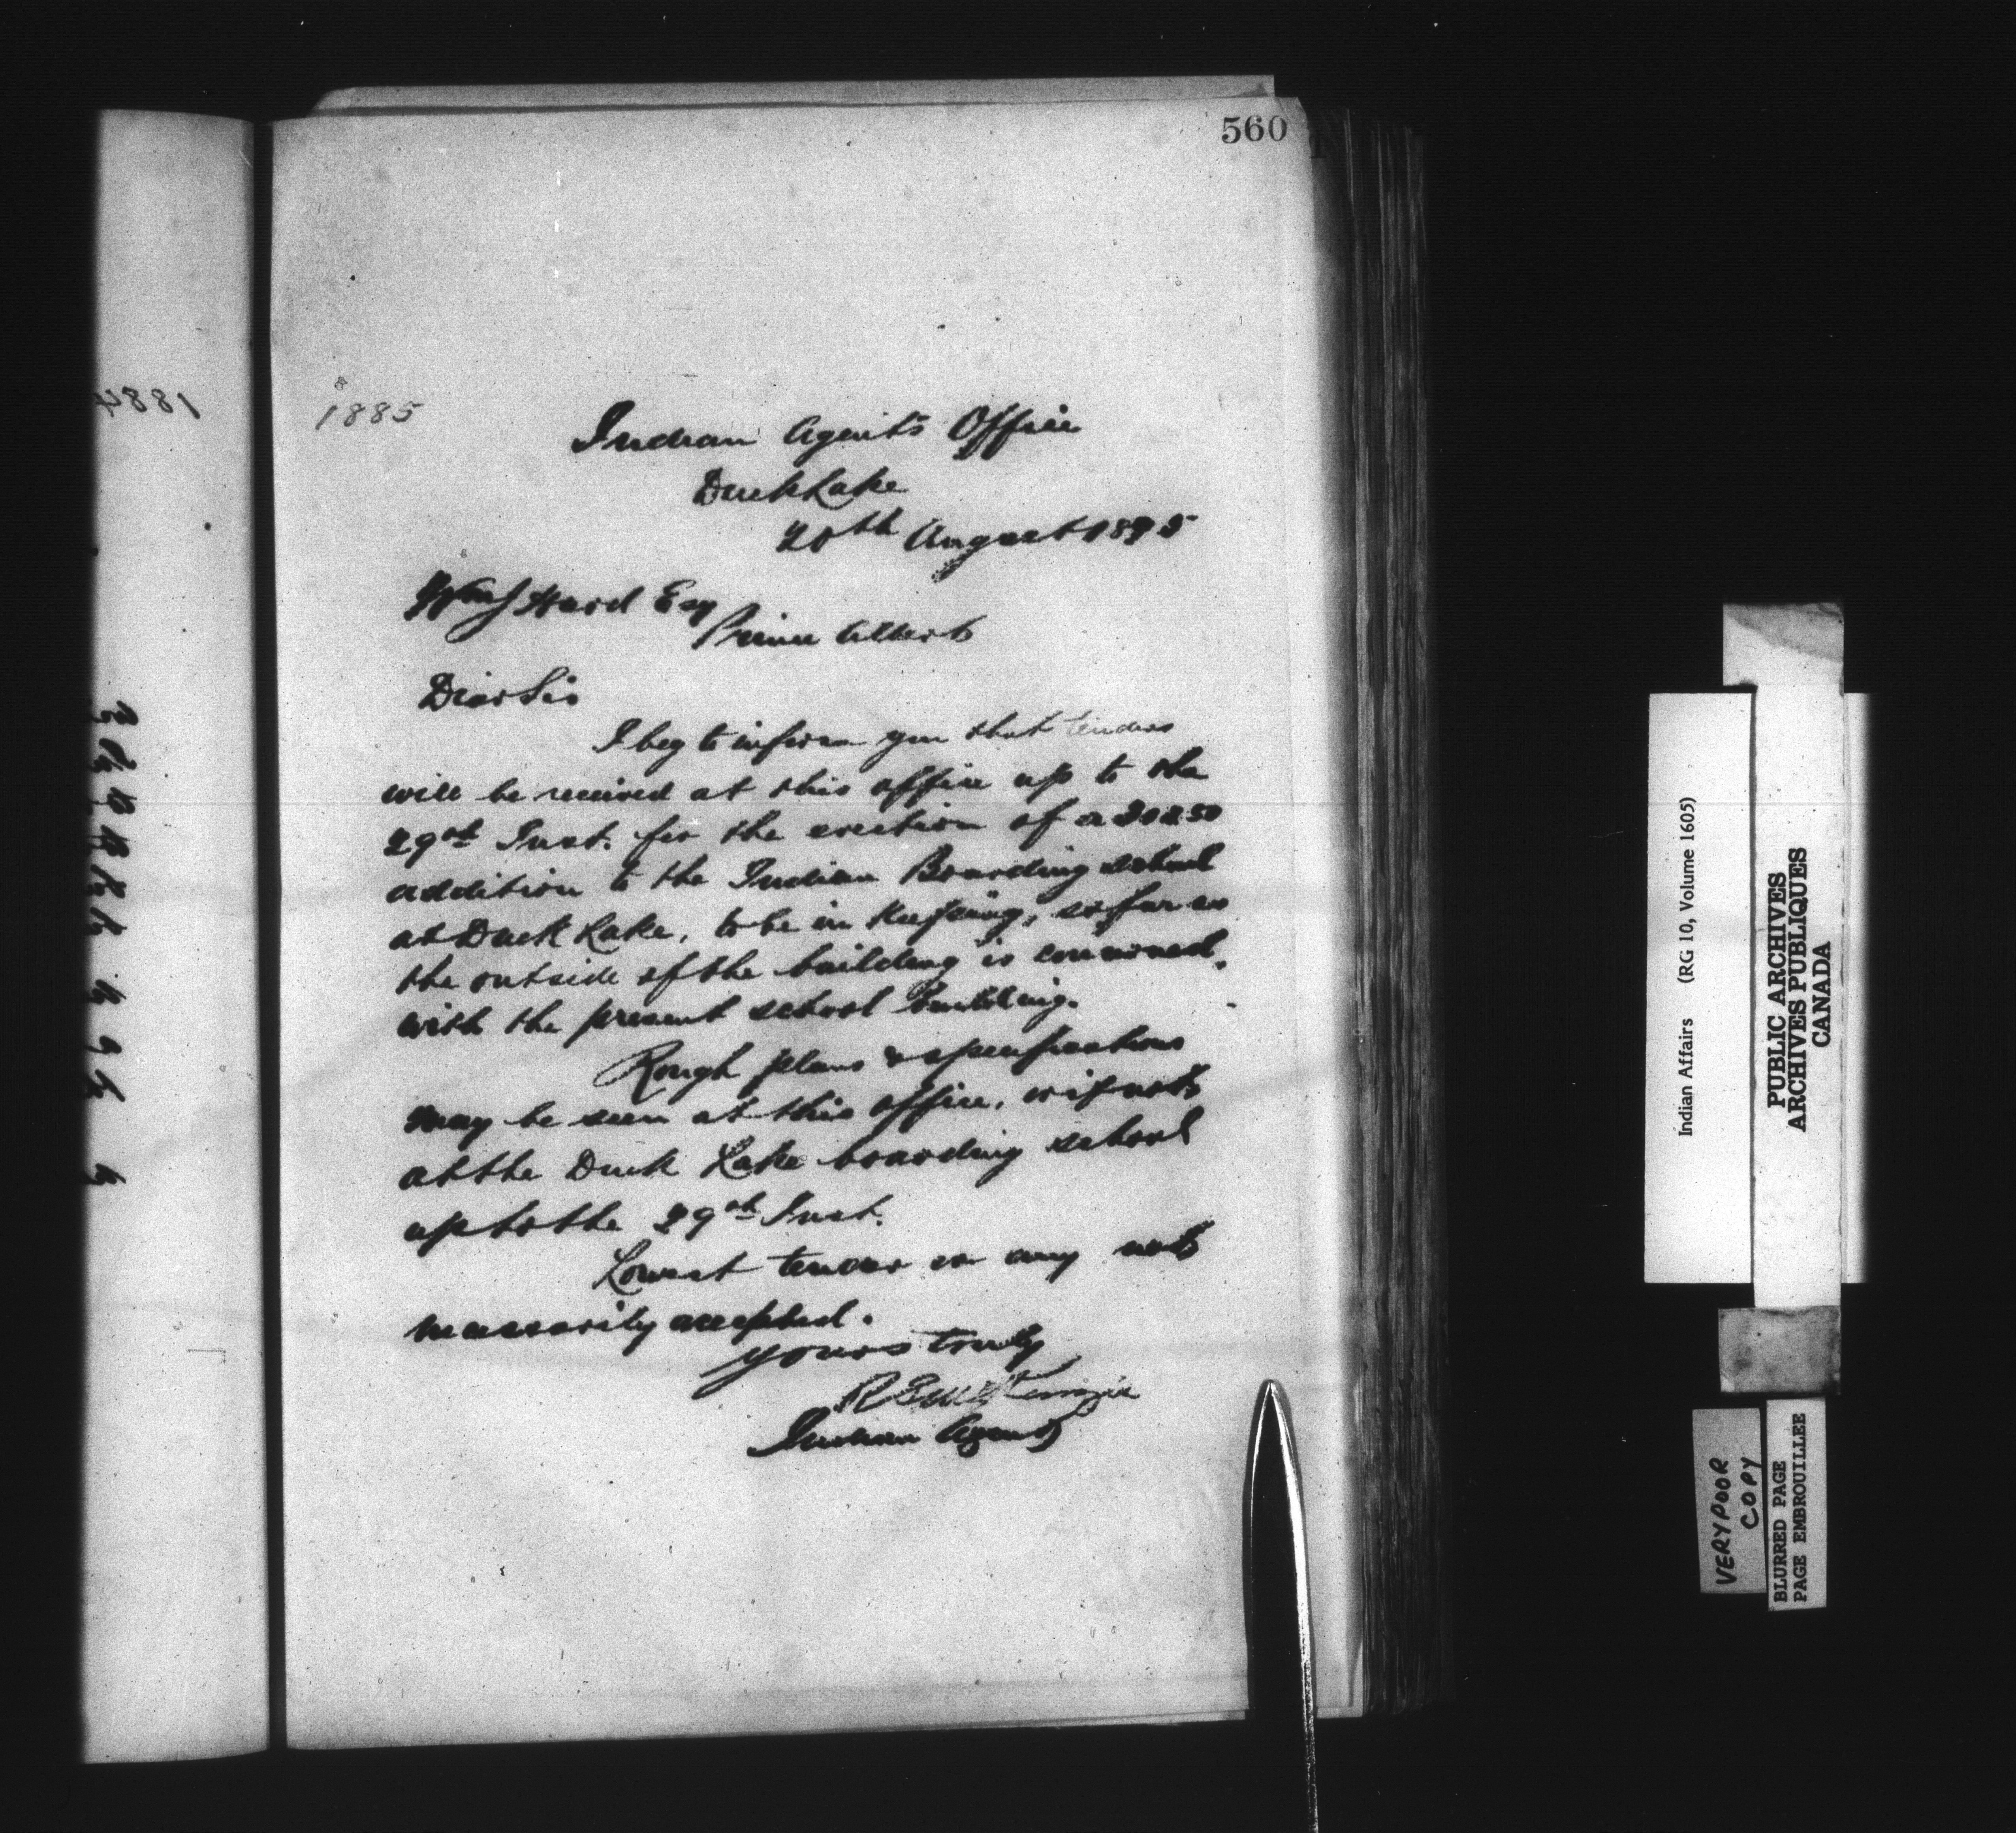 560
1884
1885
Indian Agent's Office
Duck Lake
20th August 1895
Hard Esq
Prince Albert
Dear Sir
I beg to inform you that tenders
will be received at this office up to the
29th Inst. for the erection of a 20x50
addition to the Indian Boarding school
at Duck Lake, to be in keeping, so far as
the outside of the building is concerned,
with the present school building.
Rough plans & specifications
may be seen at this office, or if not
at the Duck Lake boarding school
up to the 29th Inst.
Lowest tender or any not
necessarily accepted.
Yours truly
R S McKenzie
Indian Agent
Indian Affairs (RG 10, Volume 1605)
PUBLIC ARCHIVES
ARCHIVES PUBLIQUES
CANADA
VERY POOR
COPY
BLURRED PAGE
PAGE EMBROUILLEE